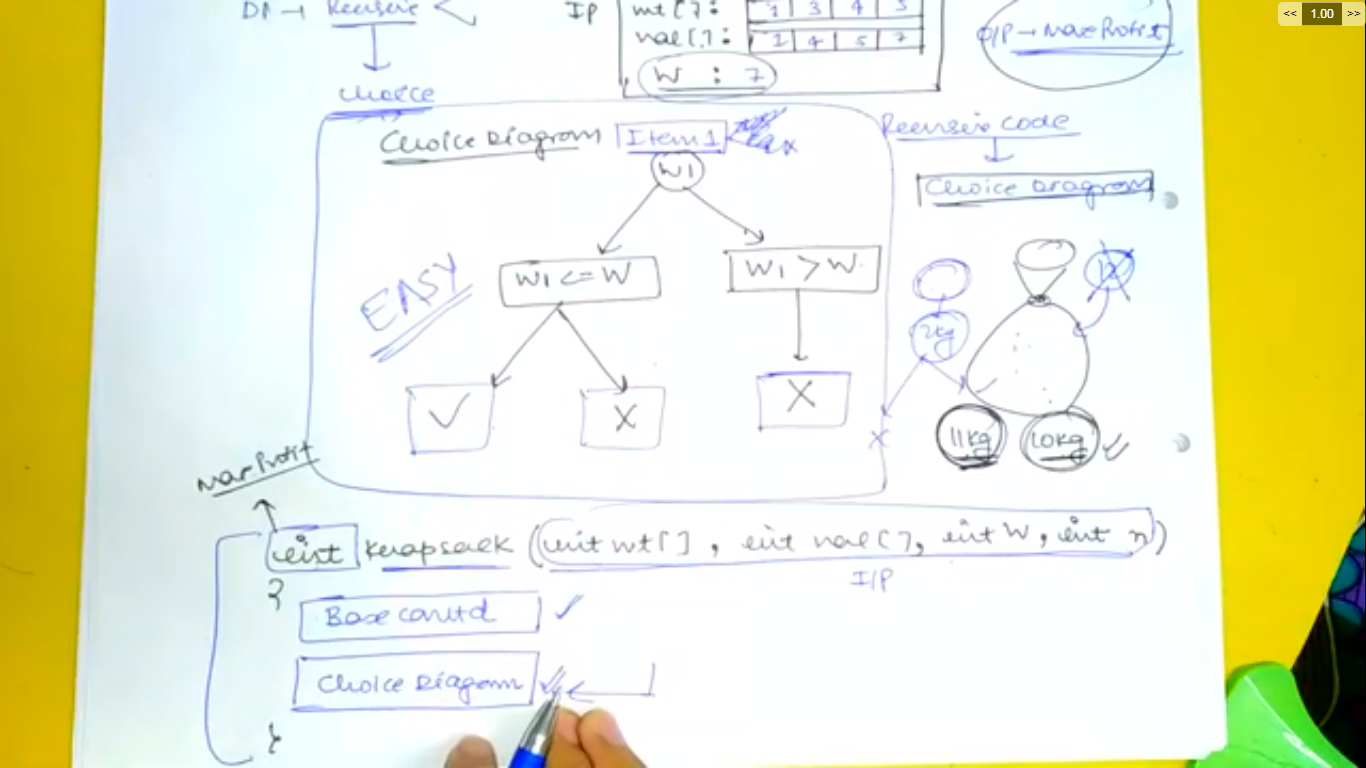 << 1.00 >>
DP → Recursive
IP
wt[]: 1 3 4 5
val[]: 1 4 5 7
W : 7
O/P → Max Profit
choice
Choice Diagram Item 1
W1
W1 <= W
W1 > W
EASY
✓
X
X
Recursive code
Choice Diagram
2kg
X
11kg
10kg ✓
Max Profit
int knapsack (int wt[], int val[], int W, int n)
I/P
{
Base condtd ✓
Choice Diagram ✓
}